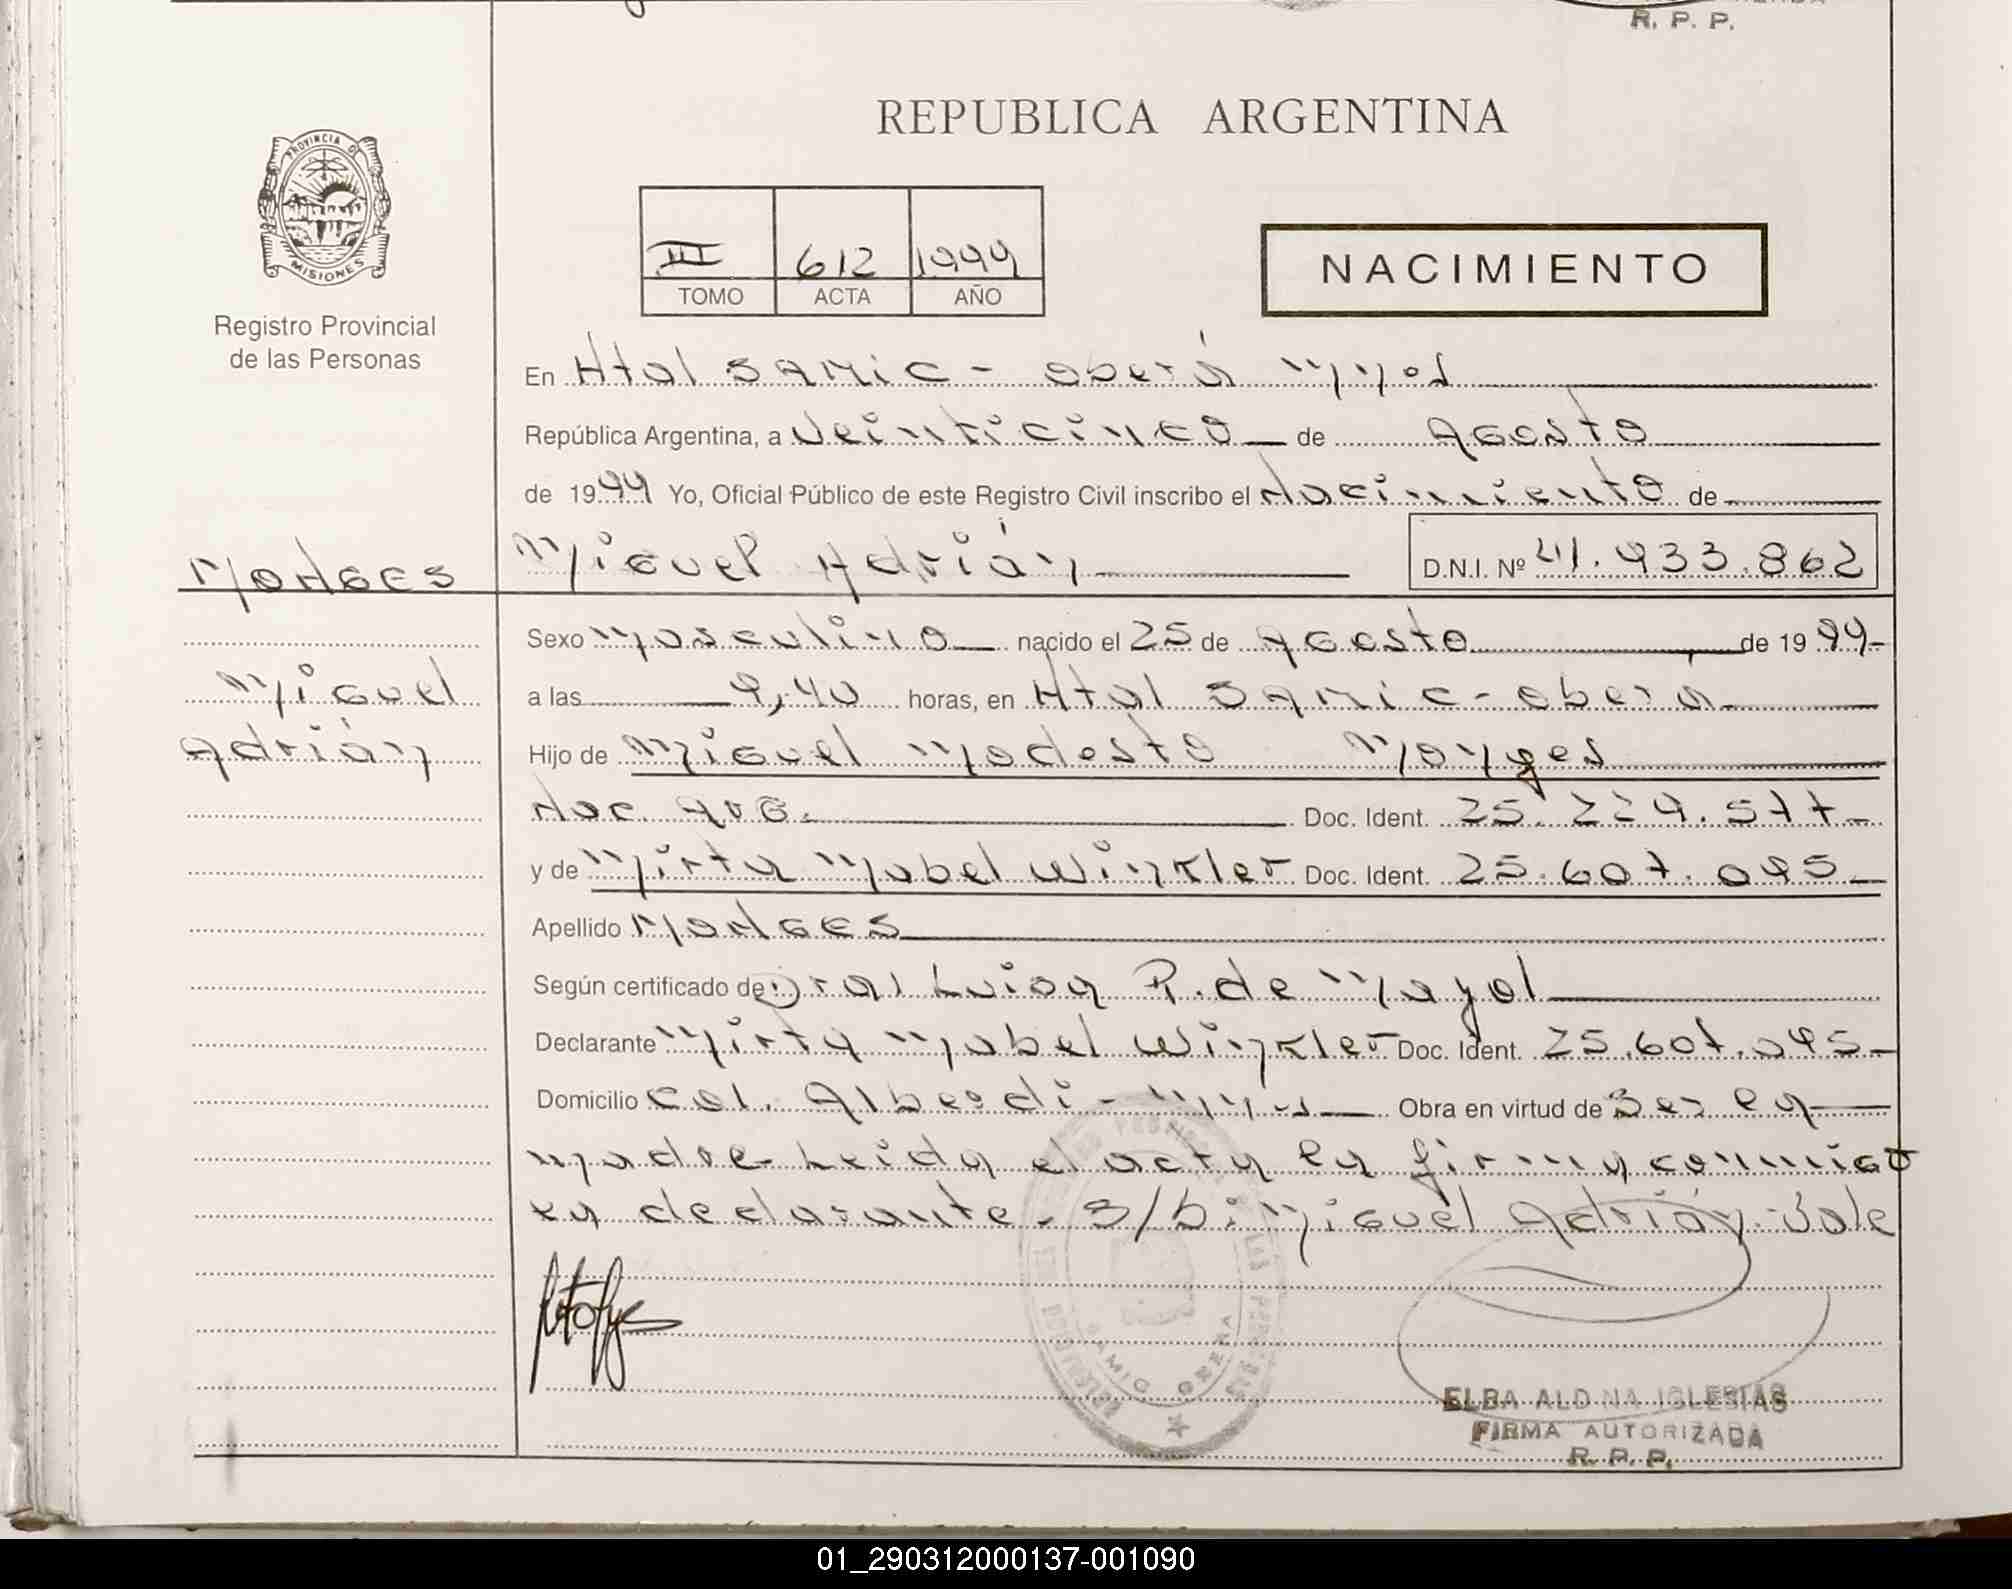 R. P. P.
REPUBLICA ARGENTINA
PROVINCIA DE
MISIONES
Registro Provincial
de las Personas
III 612 1999
TOMO ACTA AÑO
NACIMIENTO
En Htal SAMIC - Oberá Mnes
República Argentina, a veinticinco de Agosto
de 1999 Yo, Oficial Público de este Registro Civil inscribo el Nacimiento de
MONGES Miguel Adrián D.N.I. Nº 41.933.862
Sexo Masculino nacido el 25 de Agosto de 1999-
Miguel
a las 9,40 horas, en Htal SAMIC - Oberá
Adrián
Hijo de Miguel Modesto Monges
Nac. Arg. Doc. Ident. 25.229.577-
y de Mirta Mabel Winkler Doc. Ident. 25.607.095-
Apellido MONGES
Según certificado de Dra Luisa R. de Mayol
Declarante Mirta Mabel Winkler Doc. Ident. 25.607.095-
Domicilio Col. Alberdi - Mnes Obra en virtud de Ser la
madre. Leida el acta la firma conmigo
la declarante. S/b: Miguel Adrián. Vale
ELBA ALDINA IGLESIAS
FIRMA AUTORIZADA
R. P. P.
01_290312000137-001090